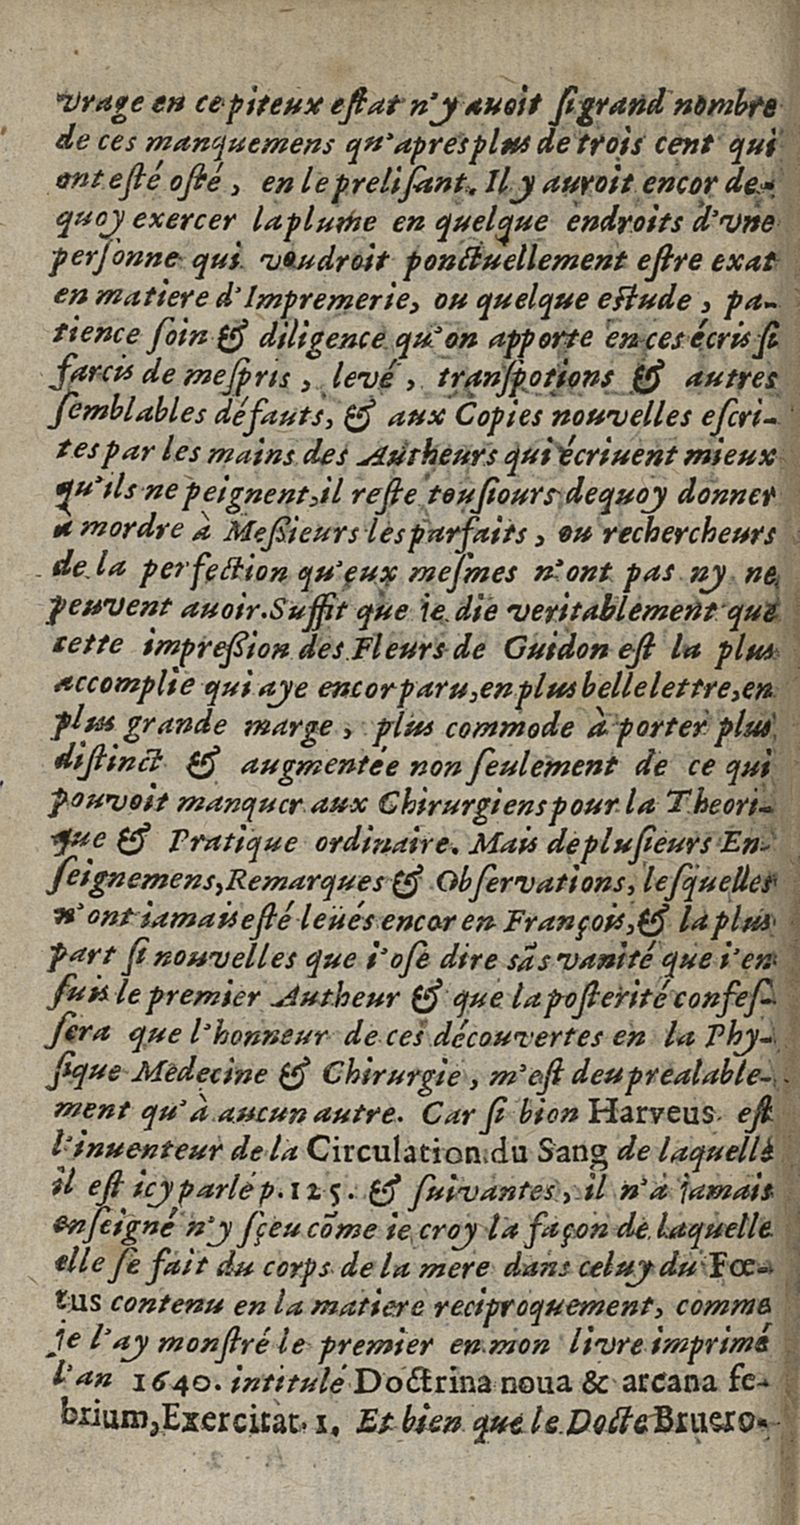 vrage en ce piteux eſtat n'y auoit ſi grand nombre
de ces manquemens qu'apres plus de trois cent qui
ont eſté oſté, en le preliſant. Il y auroit encor de-
quoy exercer la plume en quelque endroits d'vne
perſonne qui voudroit ponctuellement eſtre exat
en matiere d'Impremerie, ou quelque eſtude, pa-
tience ſoin & diligence qu'on apporte en ces écris ſi
farcis de meſpris, levé, tranſpotions & autres
ſemblables défauts, & aux Copies nouvelles eſcri-
tes par les mains des Autheurs qui écriuent mieux
qu'ils ne peignent, il reſte touſiours dequoy donner
à mordre à Meſſieurs les parfaits, ou rechercheurs
de la perfection qu'eux meſmes n'ont pas ny ne
peuvent auoir. Suffit que ie die veritablement que
cette impreſſion des Fleurs de Guidon eſt la plus
accomplie qui aye encor paru, en plus belle lettre, en
plus grande marge, plus commode à porter plus
diſtinct & augmentée non ſeulement de ce qui
pouvoit manquer aux Chirurgiens pour la Theori-
que & Pratique ordinaire. Mais de pluſieurs En-
ſeignemens, Remarques & Obſervations, leſquelles
n'ont iamais eſté leües encor en François, & la plus
part ſi nouvelles que i'oſe dire sãs vanité que i'en
ſuis le premier Autheur & que la poſterité confeſ-
ſera que l'honneur de ces découvertes en la Phy-
ſique Medecine & Chirurgie, m'eſt deu prealable-
ment qu'à aucun autre. Car ſi bien Harveus eſt
l'inuenteur de la Circulation du Sang de laquelle
il eſt icy parlé p. 125. & ſuivantes, il n'à jamais
enſeigné n'y ſçeu cõme ie croy la façon de laquelle
elle ſe fait du corps de la mere dans celuy du Fœ-
tus contenu en la matiere reciproquement, comme
je l'ay monſtré le premier en mon livre imprimé
l'an 1640. intitulé Doctrina noua & arcana fe-
brium, Exercitat. 1. Et bien que le Docte Bruero-